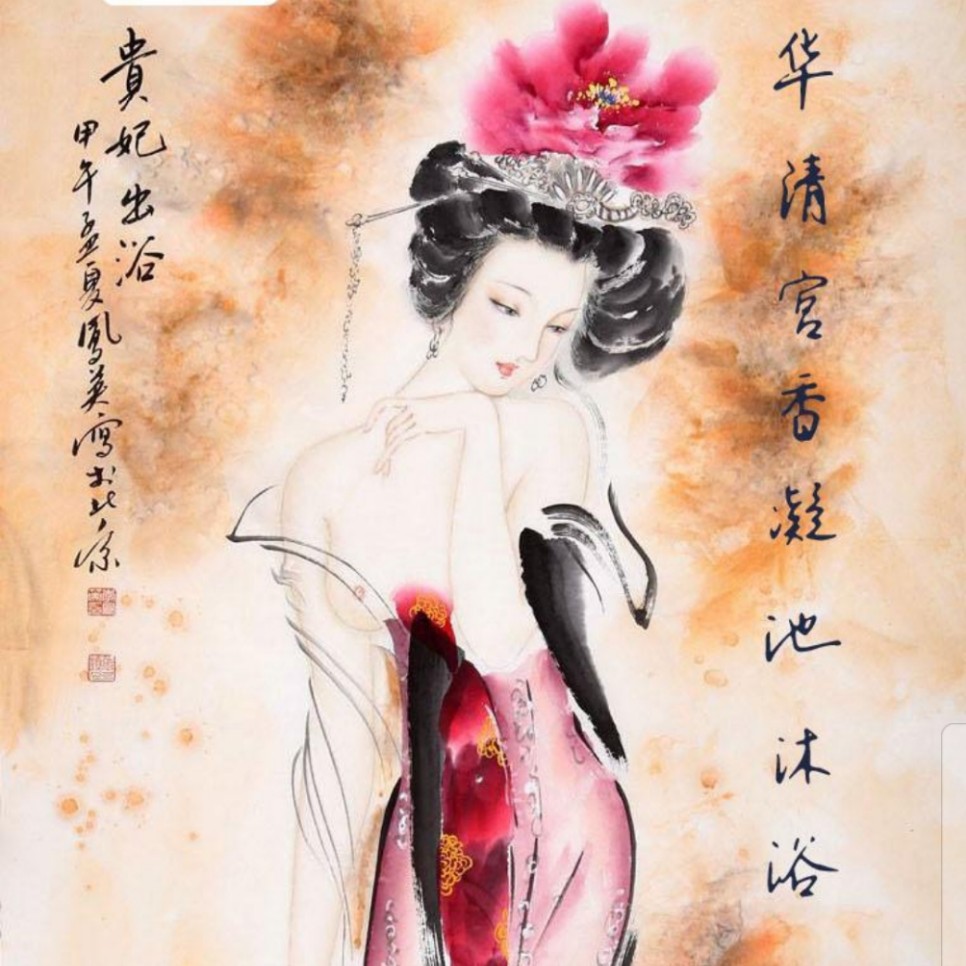 华清宫香凝池沐浴
貴妃出浴
甲午孟夏鳳英寫於北京